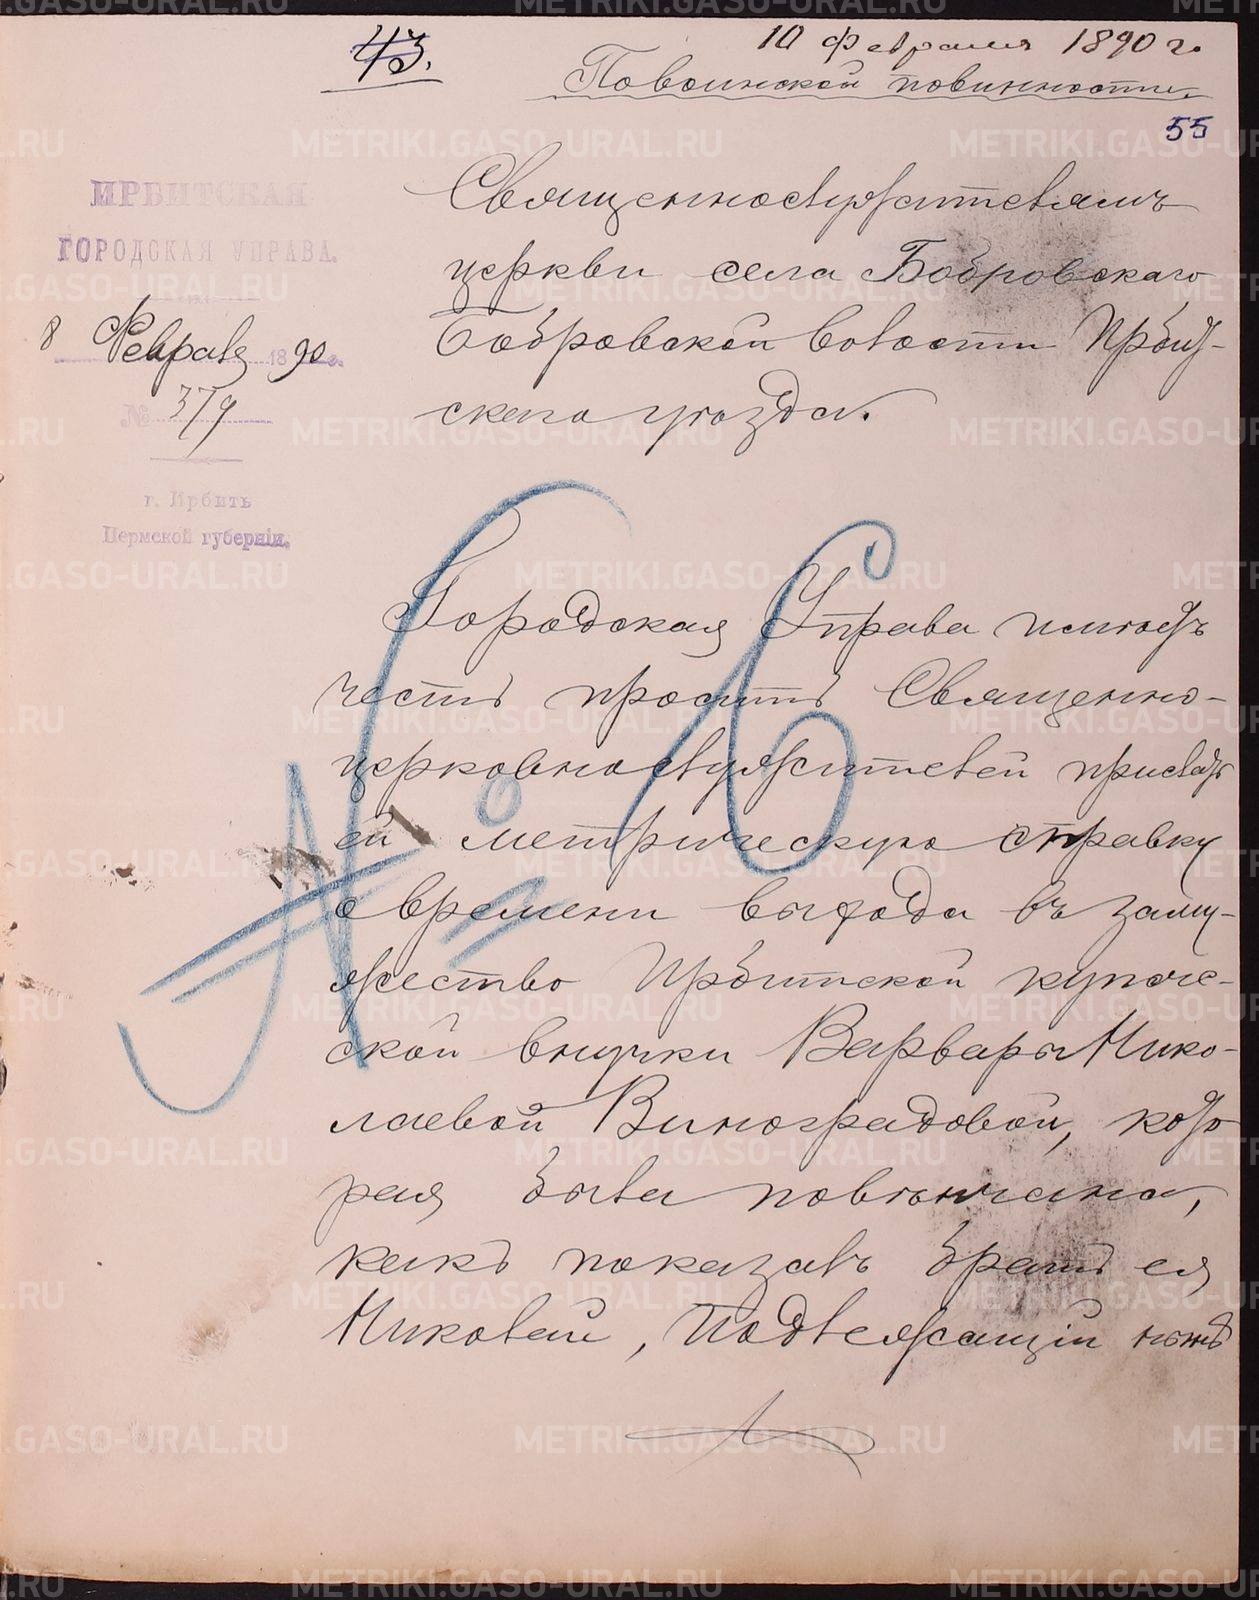 43.
10 февраля 1890 г.
По воинской повинности.
55
ИРБИТСКАЯ
ГОРОДСКАЯ УПРАВА.
8 Февраля 1890 г.
№ 379
г. Ирбить
Пермской губерніи.
Священнослужителямъ
церкви села Бобровскаго
Бобровской волости Ирбит-
скаго уѣзда.
№ 16
Городская Управа имѣетъ
честь проситъ Священно-
церковнослужителей прислать
ей метрическую справку
о времени выхода въ заму-
жество Ирбитской купече-
ской внучки Варвары Нико-
лаевой Виноградовой, кото
рая была повѣнчана,
какъ показалъ братъ ея
Николай, подлежащій